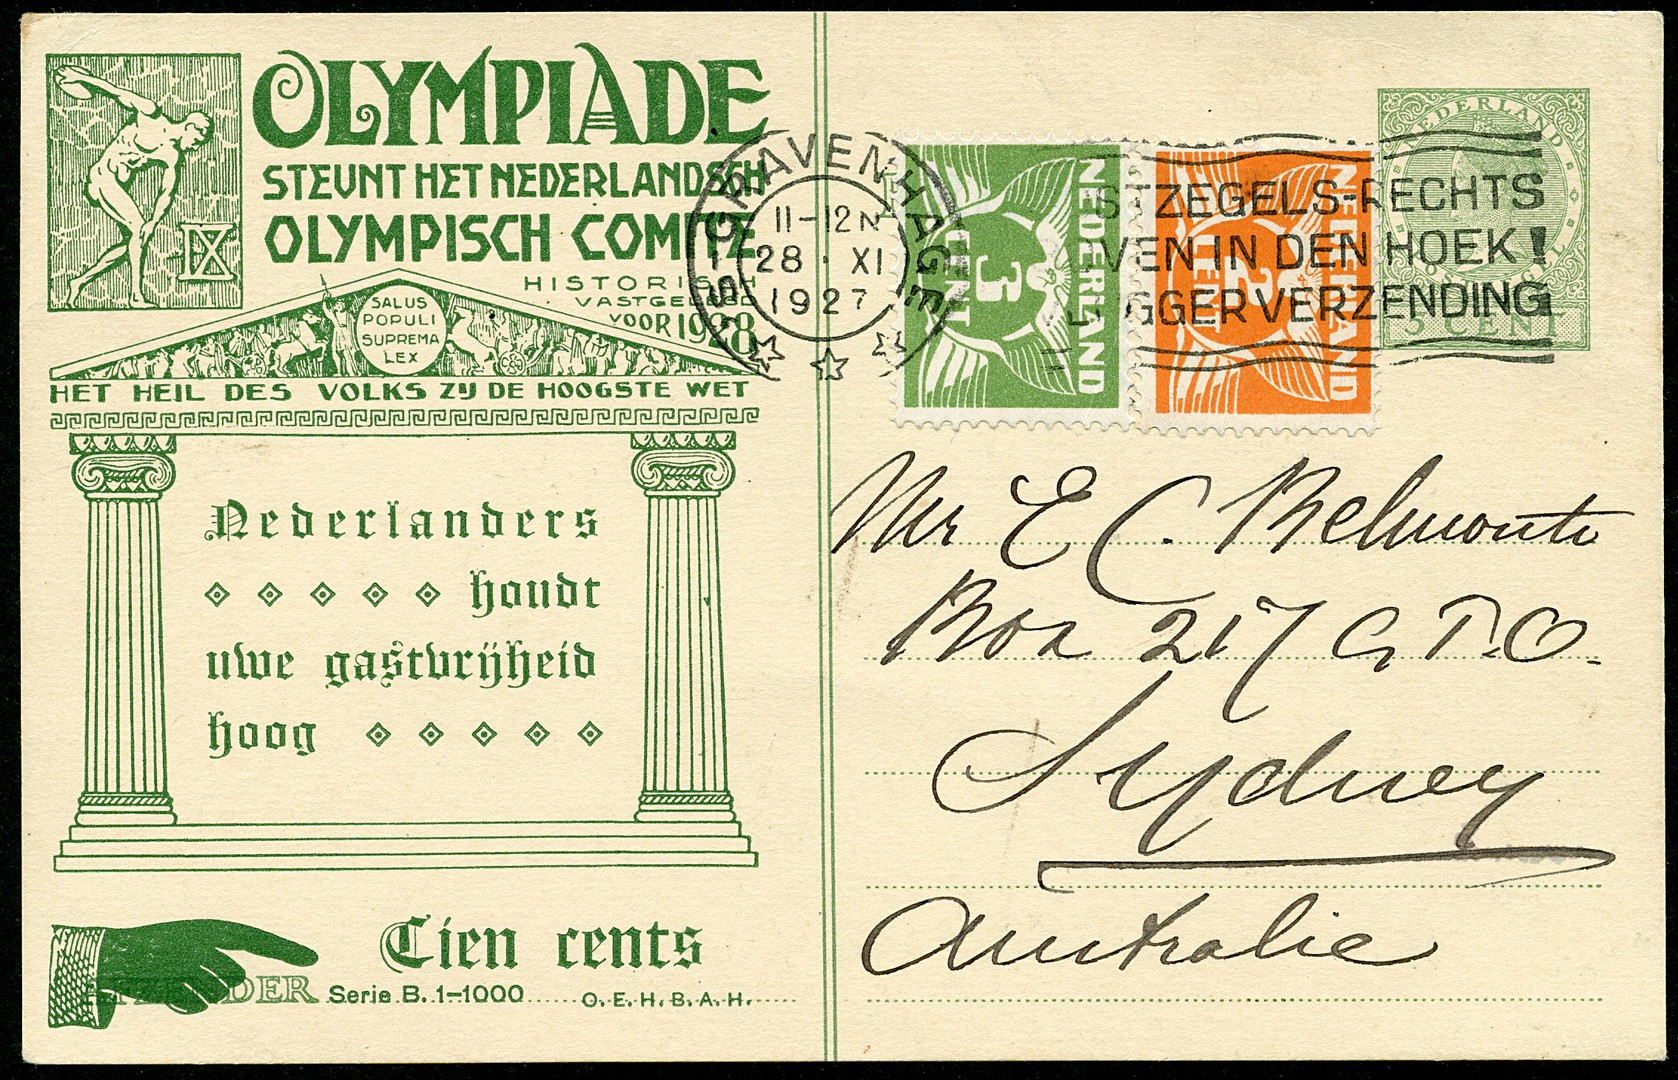 OLYMPIADE
STEUNT HET NEDERLANDSCH
OLYMPISCH COMITE
IX
HISTORISCH
VASTGELEGD
VOOR 1928
SALUS
POPULI
SUPREMA
LEX
HET HEIL DES VOLKS ZIJ DE HOOGSTE WET
Nederlanders
houdt
uwe gastvrijheid
hoog
Tien cents
DER
Serie B. 1-1000
O. E. H. B. A. H.
'S-GRAVENHAGE
11-12N
28 · XI
1927
NEDERLAND
3
CENT
NEDERLAND
2
CENT
NEDERLAND
5 CENT
STZEGELS-RECHTS
VEN IN DEN HOEK!
GGER VERZENDING
Mr E C. Belmonte
Box 217 G.P.O.
Sydney
Australie